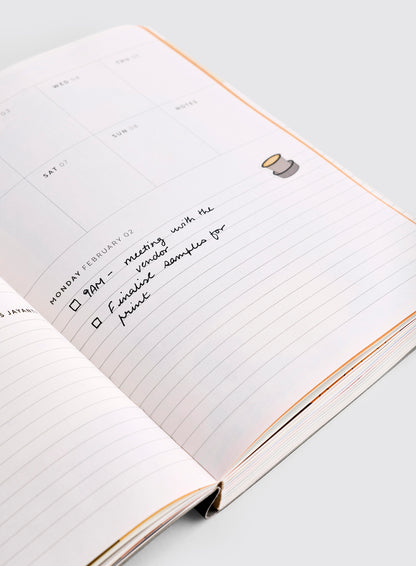 03
WED 04
THU 05
SAT 07
SUN 08
NOTES
MONDAY FEBRUARY 02
9AM - meeting with the
vendor
Finalise samples for
print